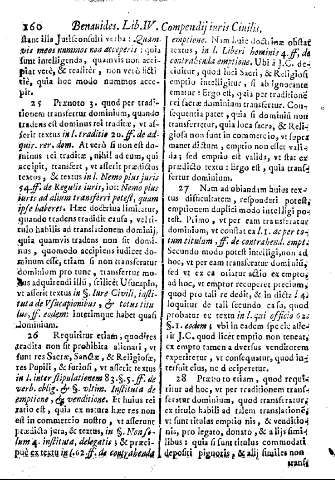 160 Benauides. Lib. IV. Compendij iuris Ciuilis.
stant illa Jurisconsulti verba: Quan-
vis meos nummos non acceperis: quia
sunt intelligenda, quamvis non acci-
piat verè, & realiter, non verò ficti
tiè, quia hoc modo nummos acce-
pit.
25 Prænoto 3. quod per tradi-
tionem transfertur dominium, quando
tradens est dominus rei traditæ, vt as-
serit textus in l. traditio 20. ff. de ad-
quir. rer. dom. At verò si non est do-
minus rei traditæ, nihil ad eum, qui
accipit, transfert, vt asserit prædictus
textus, & textus in l. Nemo plus juris
54. ff. de Regulis iuris, ibi: Nemo plus
iuris ad alium transferri potest, quam
ipse haberet. Hæc doctrina limitatur,
quando tradens tradidit causa, vel ti-
tulo habilis ad translationem dominij,
quia quamvis tradens non sit domi-
nus, quomodo accipiens iudicet do-
minum esse, etiam si non transfertur
dominium pro tunc, transfertur mo-
dus adquirendi illu, scilicet Vsucapio,
vt asserit textus in §. Iure Civili, insti-
tuta de Vsucapionibus, & totus titu
lus, ff. eodem: interimque habet quasi
dominium.
26 Requiritur etiam, quod res
tradita non sit prohibita alienari, vt
sunt res Sacræ, Sanctæ, & Religiosæ,
res Pupili, & furiosi, vt asserit textus
in l. inter stipulationem 83. §. 5. ff. de
verb. oblig. & §. ultim. Instituta de
emptione, & venditione. Et huius rei
ratio est, quia ex natura hæc res non
est in commercio nostro, vt asserunt
prædicta jura, & textus, in §. Non so-
lum 4. instituta, delegatis; & præci-
puè ex textu in l. 62. ff. de contrahenda
emptione. Nam huic doctrinæ obstat
textus, in l. Liberi hominis 4. ff. de
contrahenda emptione. Vbi à J.C. de-
ciditur, quod loci Sacri, & Religiosi
emptio intelligitur, si ab ignorante
ematur: Ergo est, quia per traditionẽ
rei sacræ dominium transfertur. Con-
sequentia patet, quia si dominium non
transferretur, quia loca sacra, & Reli-
giosa non sunt in commercio, vt supe-
manet dictum, emptio non esset vali-
da; sed emptio est valida, vt stat ex
prædicto textu: Ergo est, quia trans-
fertur dominium.
27 Nam ad obiandam huius tex-
tus difficultatem, responderi potest,
emptionem duplici modo intelligi po-
test. Primo, vt per eam transferatur
dominium, vt constat ex l. 1. ac per to-
tum titulum, ff. de contrahend. empt.
Secundo modo potest intelligi, non ad
hoc, vt per eam transferatur dominiũ,
sed vt ex ea oriatur actio ex empto
ad hoc, vt emptor recuperet precium,
quod pro tali re dedit, & in dicta l. 4.
loquitur de tali secundo casu, quod
probatur ex textu in l. qui officio 62.
§. 1. eodem; vbi in eadem specie asse-
rit J.C. quod licet emptio non teneat,
ex empto tamen adversus venditorem
experiretur, vt consequatur, quod in-
terfuit eius, ne deciperetur.
28 Prænoto etiam, quod requi-
ritur ad hoc, vt per traditionem trans-
feratur dominium, quod transferatur
ex titulo habili ad talem translationẽ,
vt sunt titulus emptionis, & venditio-
nis, pro legato, donatione, & alij simi-
libus: quia si sunt titulus commodati
depositi pignoris, & alij similes non
trans-